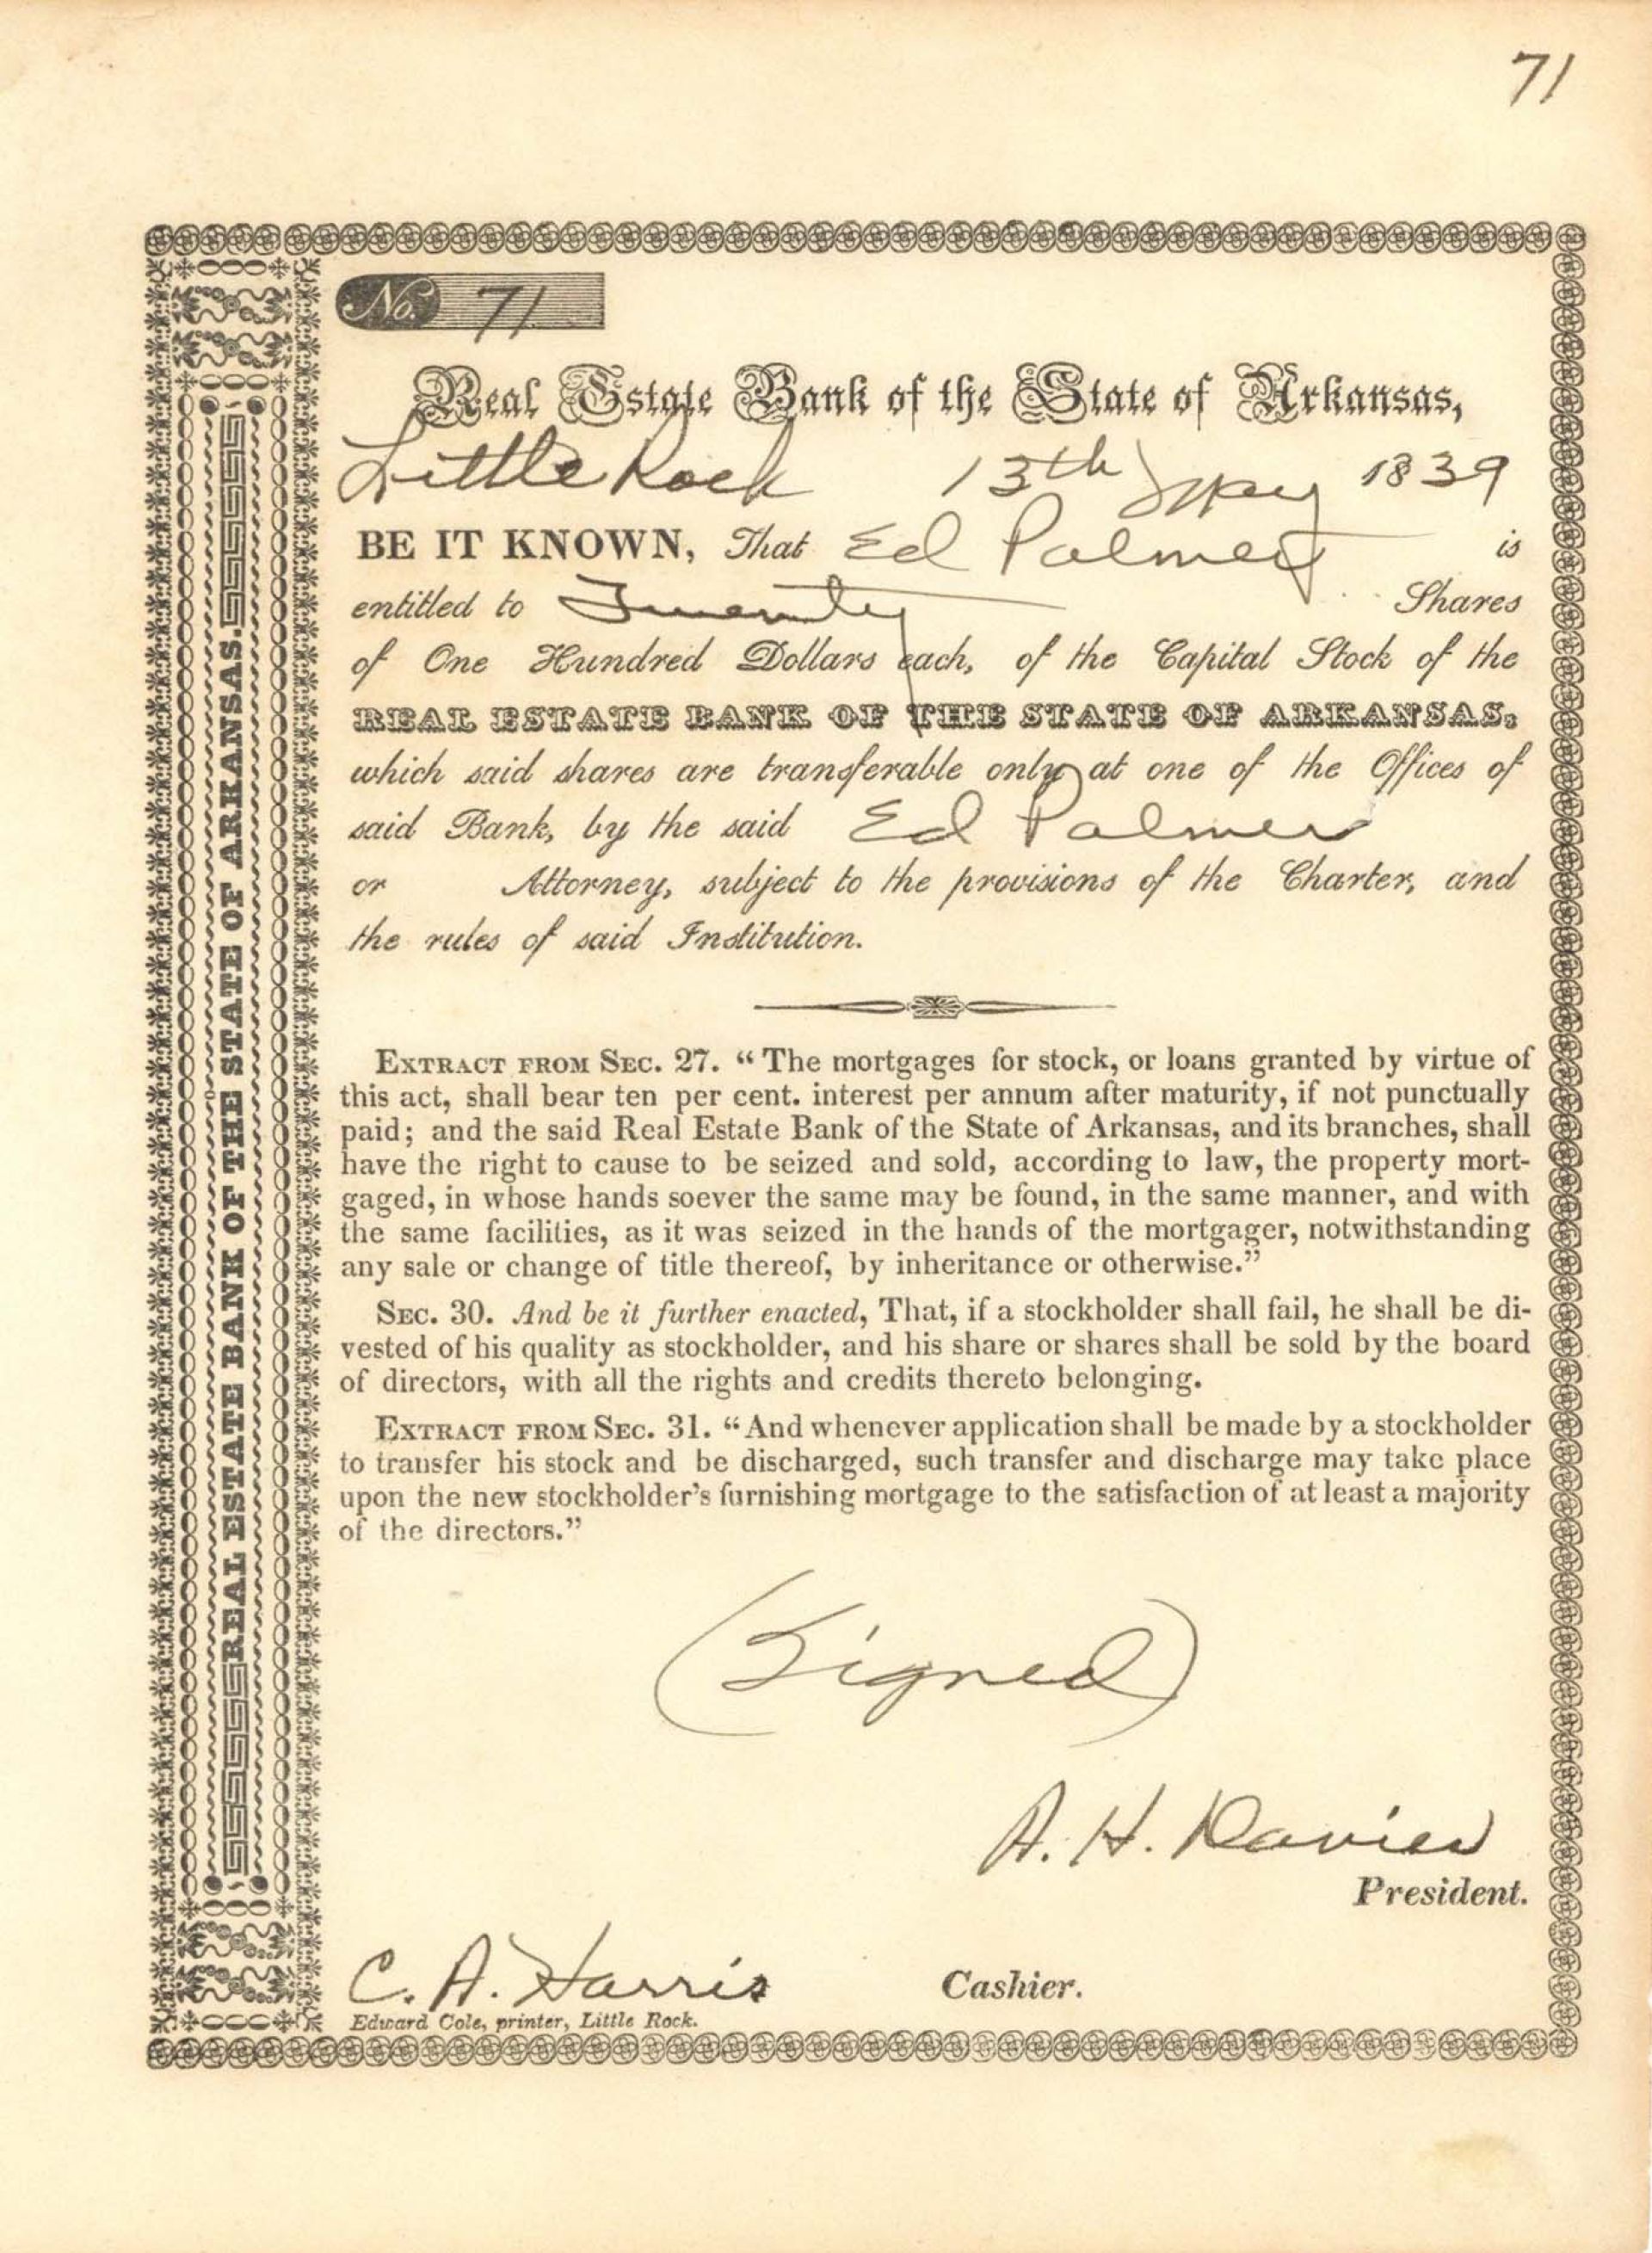 71
No. 71
Real Estate Bank of the State of Arkansas,
Little Rock 13th May 1839
BE IT KNOWN, That Ed Palmer is
entitled to Twenty Shares
of One Hundred Dollars each, of the Capital Stock of the
REAL ESTATE BANK OF THE STATE OF ARKANSAS,
which said shares are transferable only at one of the Offices of
said Bank, by the said Ed Palmer
or Attorney, subject to the provisions of the Charter, and
the rules of said Institution.
EXTRACT FROM SEC. 27. “The mortgages for stock, or loans granted by virtue of
this act, shall bear ten per cent. interest per annum after maturity, if not punctually
paid; and the said Real Estate Bank of the State of Arkansas, and its branches, shall
have the right to cause to be seized and sold, according to law, the property mort-
gaged, in whose hands soever the same may be found, in the same manner, and with
the same facilities, as it was seized in the hands of the mortgager, notwithstanding
any sale or change of title thereof, by inheritance or otherwise.”
SEC. 30. And be it further enacted, That, if a stockholder shall fail, he shall be di-
vested of his quality as stockholder, and his share or shares shall be sold by the board
of directors, with all the rights and credits thereto belonging.
EXTRACT FROM SEC. 31. “And whenever application shall be made by a stockholder
to transfer his stock and be discharged, such transfer and discharge may take place
upon the new stockholder's furnishing mortgage to the satisfaction of at least a majority
of the directors.”
(Signed)
A. H. Davies
President.
C. A. Harris Cashier.
Edward Cole, printer, Little Rock.
REAL ESTATE BANK OF THE STATE OF ARKANSAS.